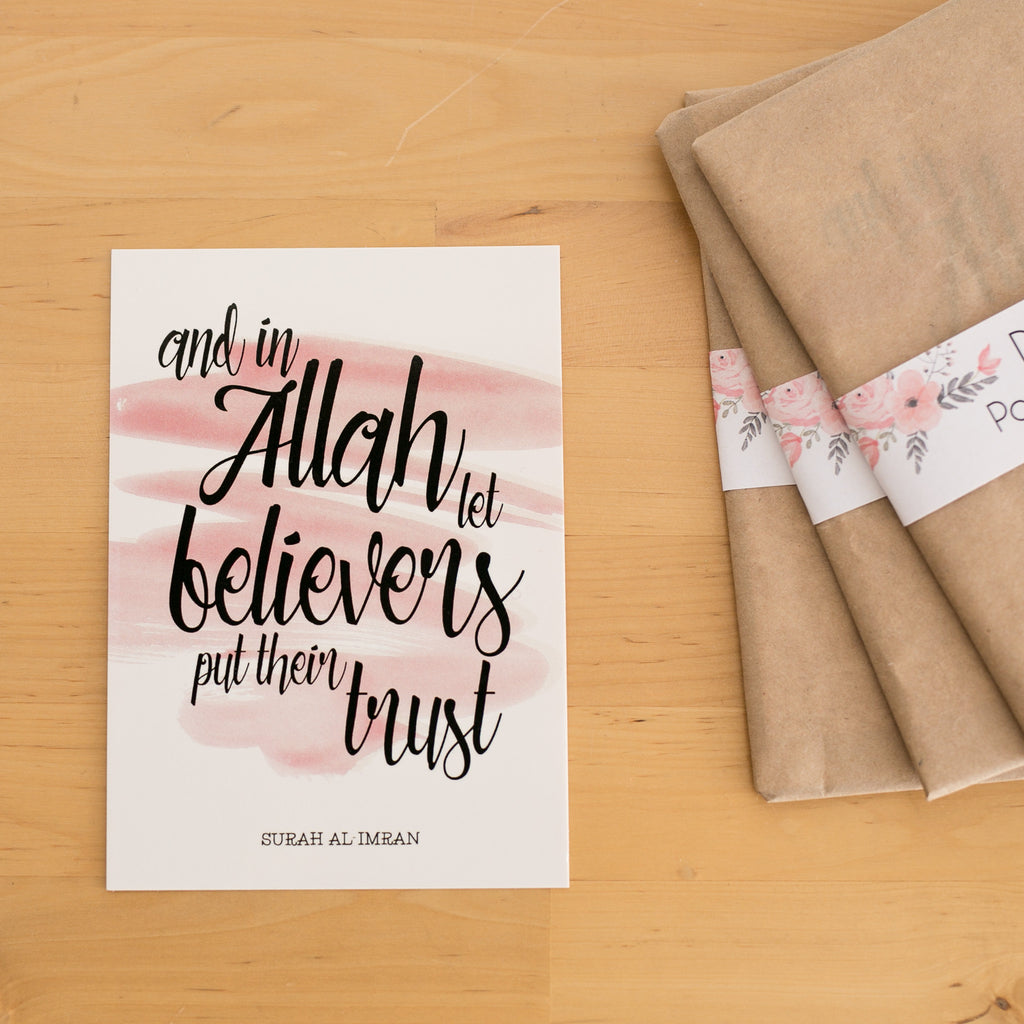 and in
Allah
let
believers
put their
trust
SURAH AL-IMRAN